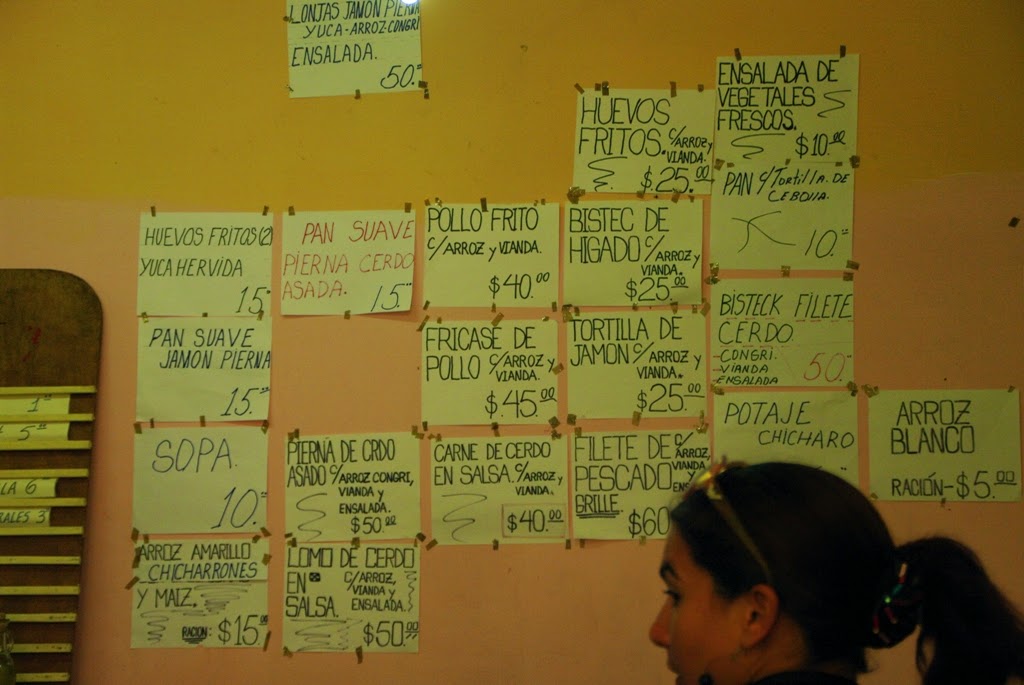 LONJAS JAMON PIERNA
YUCA-ARROZ-CONGRI
ENSALADA.
50.=
HUEVOS
FRITOS. C/ARROZ y
VIANDA.
$25.00
ENSALADA DE
VEGETALES
FRESCOS.
$10.00
PAN C/TORTILLA. DE
CEBOLLA.
10.=
HUEVOS FRITOS (2)
YUCA HERVIDA
15.=
PAN SUAVE
PIERNA CERDO
ASADA. 15.=
POLLO FRITO
C/ARROZ y VIANDA.
$40.00
BISTEC DE
HIGADO C/
ARROZ y
VIANDA.
$25.00
BISTECK FILETE
CERDO.
CONGRI.
VIANDA
ENSALADA
50.=
PAN SUAVE
JAMON PIERNA
15.=
FRICASE DE
POLLO C/ARROZ y
VIANDA.
$.45.00
TORTILLA DE
JAMON C/ARROZ y
VIANDA.
$25.00
POTAJE
CHICHARO
ARROZ
BLANCO
RACIÓN-$5.00
SOPA.
10.=
PIERNA DE CRDO
ASADO C/ARROZ CONGRI,
VIANDA y
ENSALADA.
$50.00
CARNE DE CERDO
EN SALSA. C/ARROZ y
VIANDA.
$40.00
FILETE DE C/ARROZ y
PESCADO VIANDA
GRILLE.
$60
ARROZ AMARILLO
CHICHARRONES
Y MAIZ.
RACION: $15.00
LOMO DE CERDO
EN C/ARROZ,
SALSA. VIANDA y
ENSALADA.
$50.00
1=
5=
LA 6
RALES 3